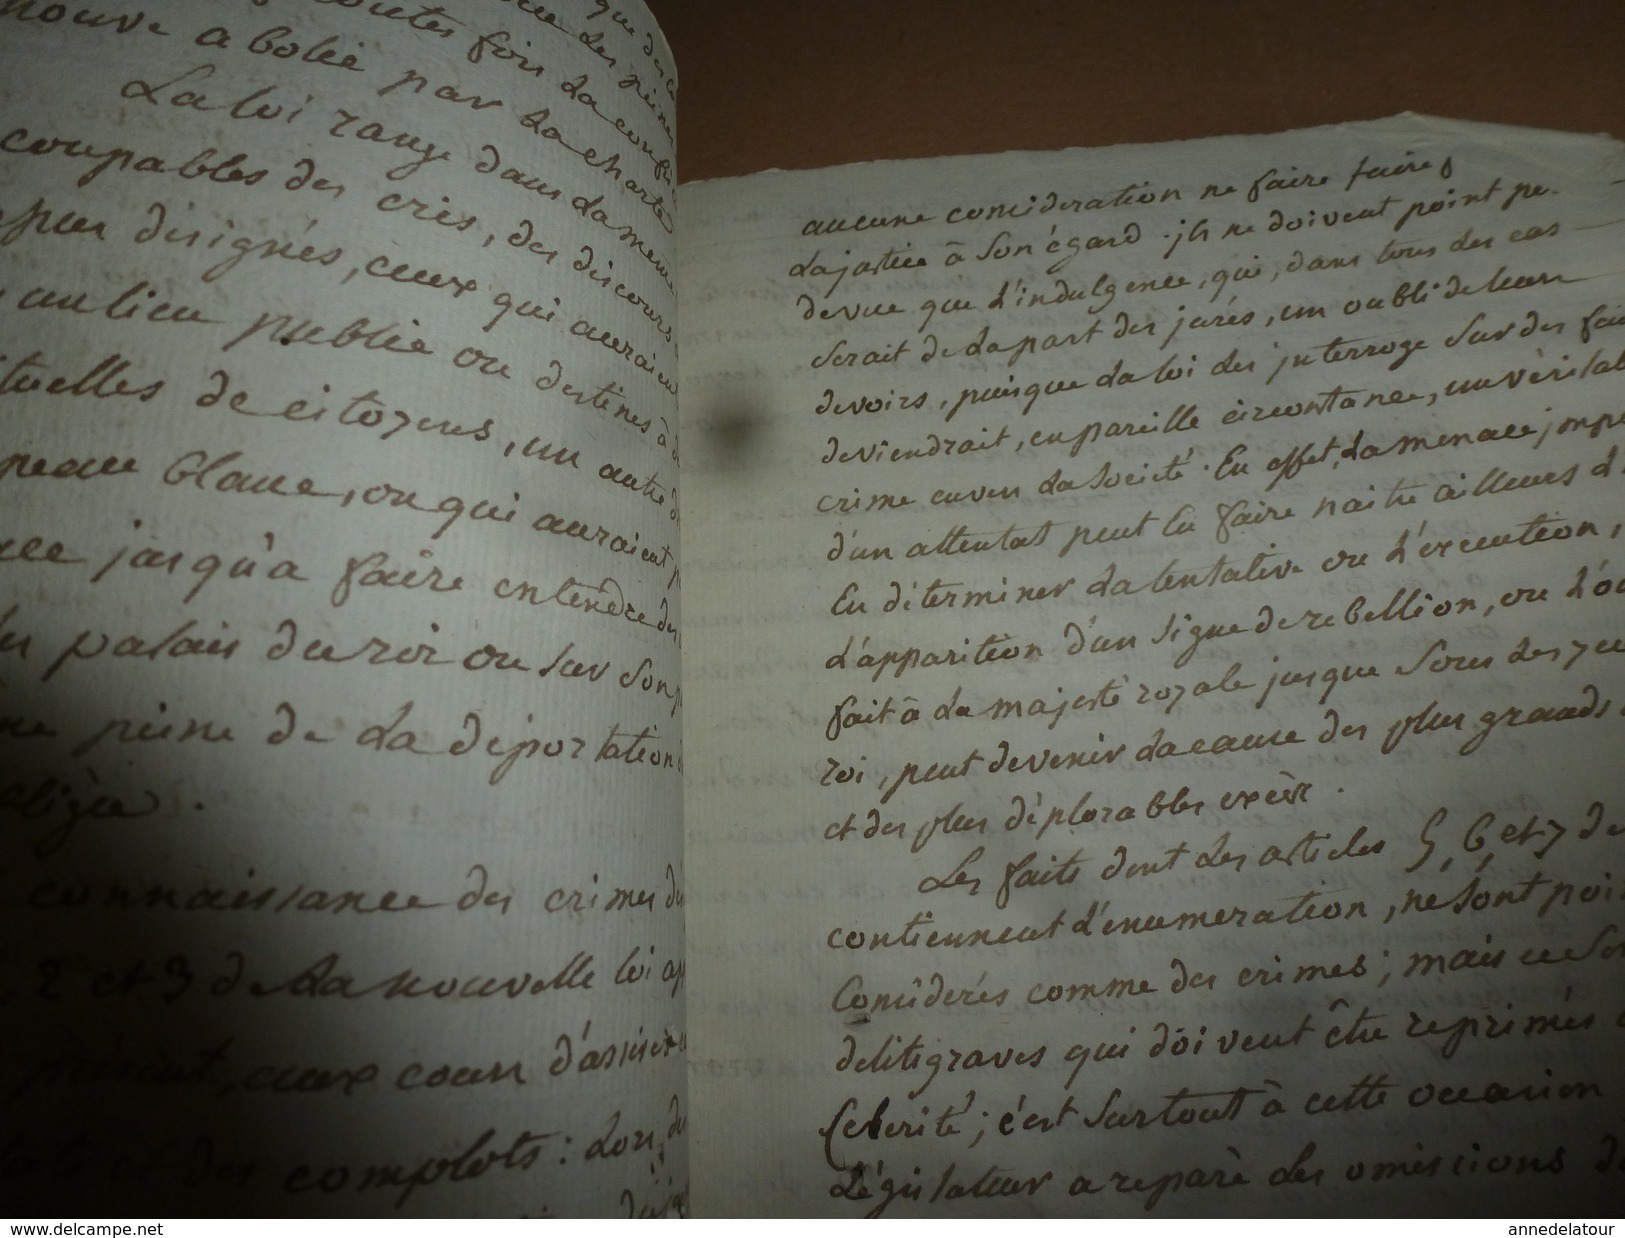 que des
toutes fois la confis
abolie par la charte
La loi range dans la meme
coupables des cris, des discours
designés, ceux qui auraient
lieu public ou destinés à
de citoyens, un autre
blanc, ou qui auraient
jusqu'a faire entendre des
palais du roi ou sur son
peine de la deportation
connaissance des crimes de
2 et 3 de la nouvelle loi
présent, aux cours d'assises
et des complots : Lors, du
aucune consideration ne faire taire
La justice à son égard. ils ne doivent point pe-
de vue que L'indulgence, qui, dans tous les cas
Serait de la part des jurés, un oubli de leurs
devoirs, puisque La loi les interroge sur des fai
deviendrait, en pareille circonstance, un véritab
crime envers La société. En effet, La menace imp
d'un attentat peut En faire naitre ailleurs L'
En déterminer La tentative ou L'execution,
L'apparition d'un signe de rebellion, ou L'ou
fait à La majesté royale jusque sous Les yeu
roi, peut devenir La cause des plus grands
et des plus déplorables excès.
Les faits dont Les articles 5, 6, et 7 de
contiennent L'enumeration, ne sont poi
Considerés comme des crimes; mais ce so
delits graves qui doivent être reprimés
Celerité; c'est surtout à cette occasion
Législateur a reparé Les omissions de
www.delcampe.net
annedelatour